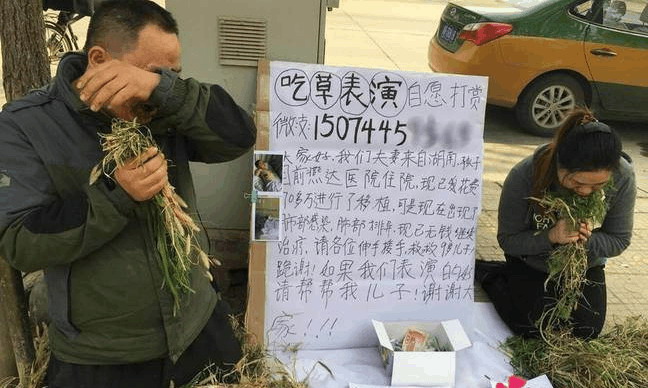 吃草表演 自愿打赏
微信:1507445
大家好,我们夫妻来自湖南,孩子
目前燕达医院住院,现已花费
70多万进行了移植,可是现在出现了
肺部感染,肺部排异,现已无钱继续
治疗,请各位伸手援手,救救9岁儿子
跪谢!如果我们表演的好
请帮帮我儿子!谢谢大
家!!!